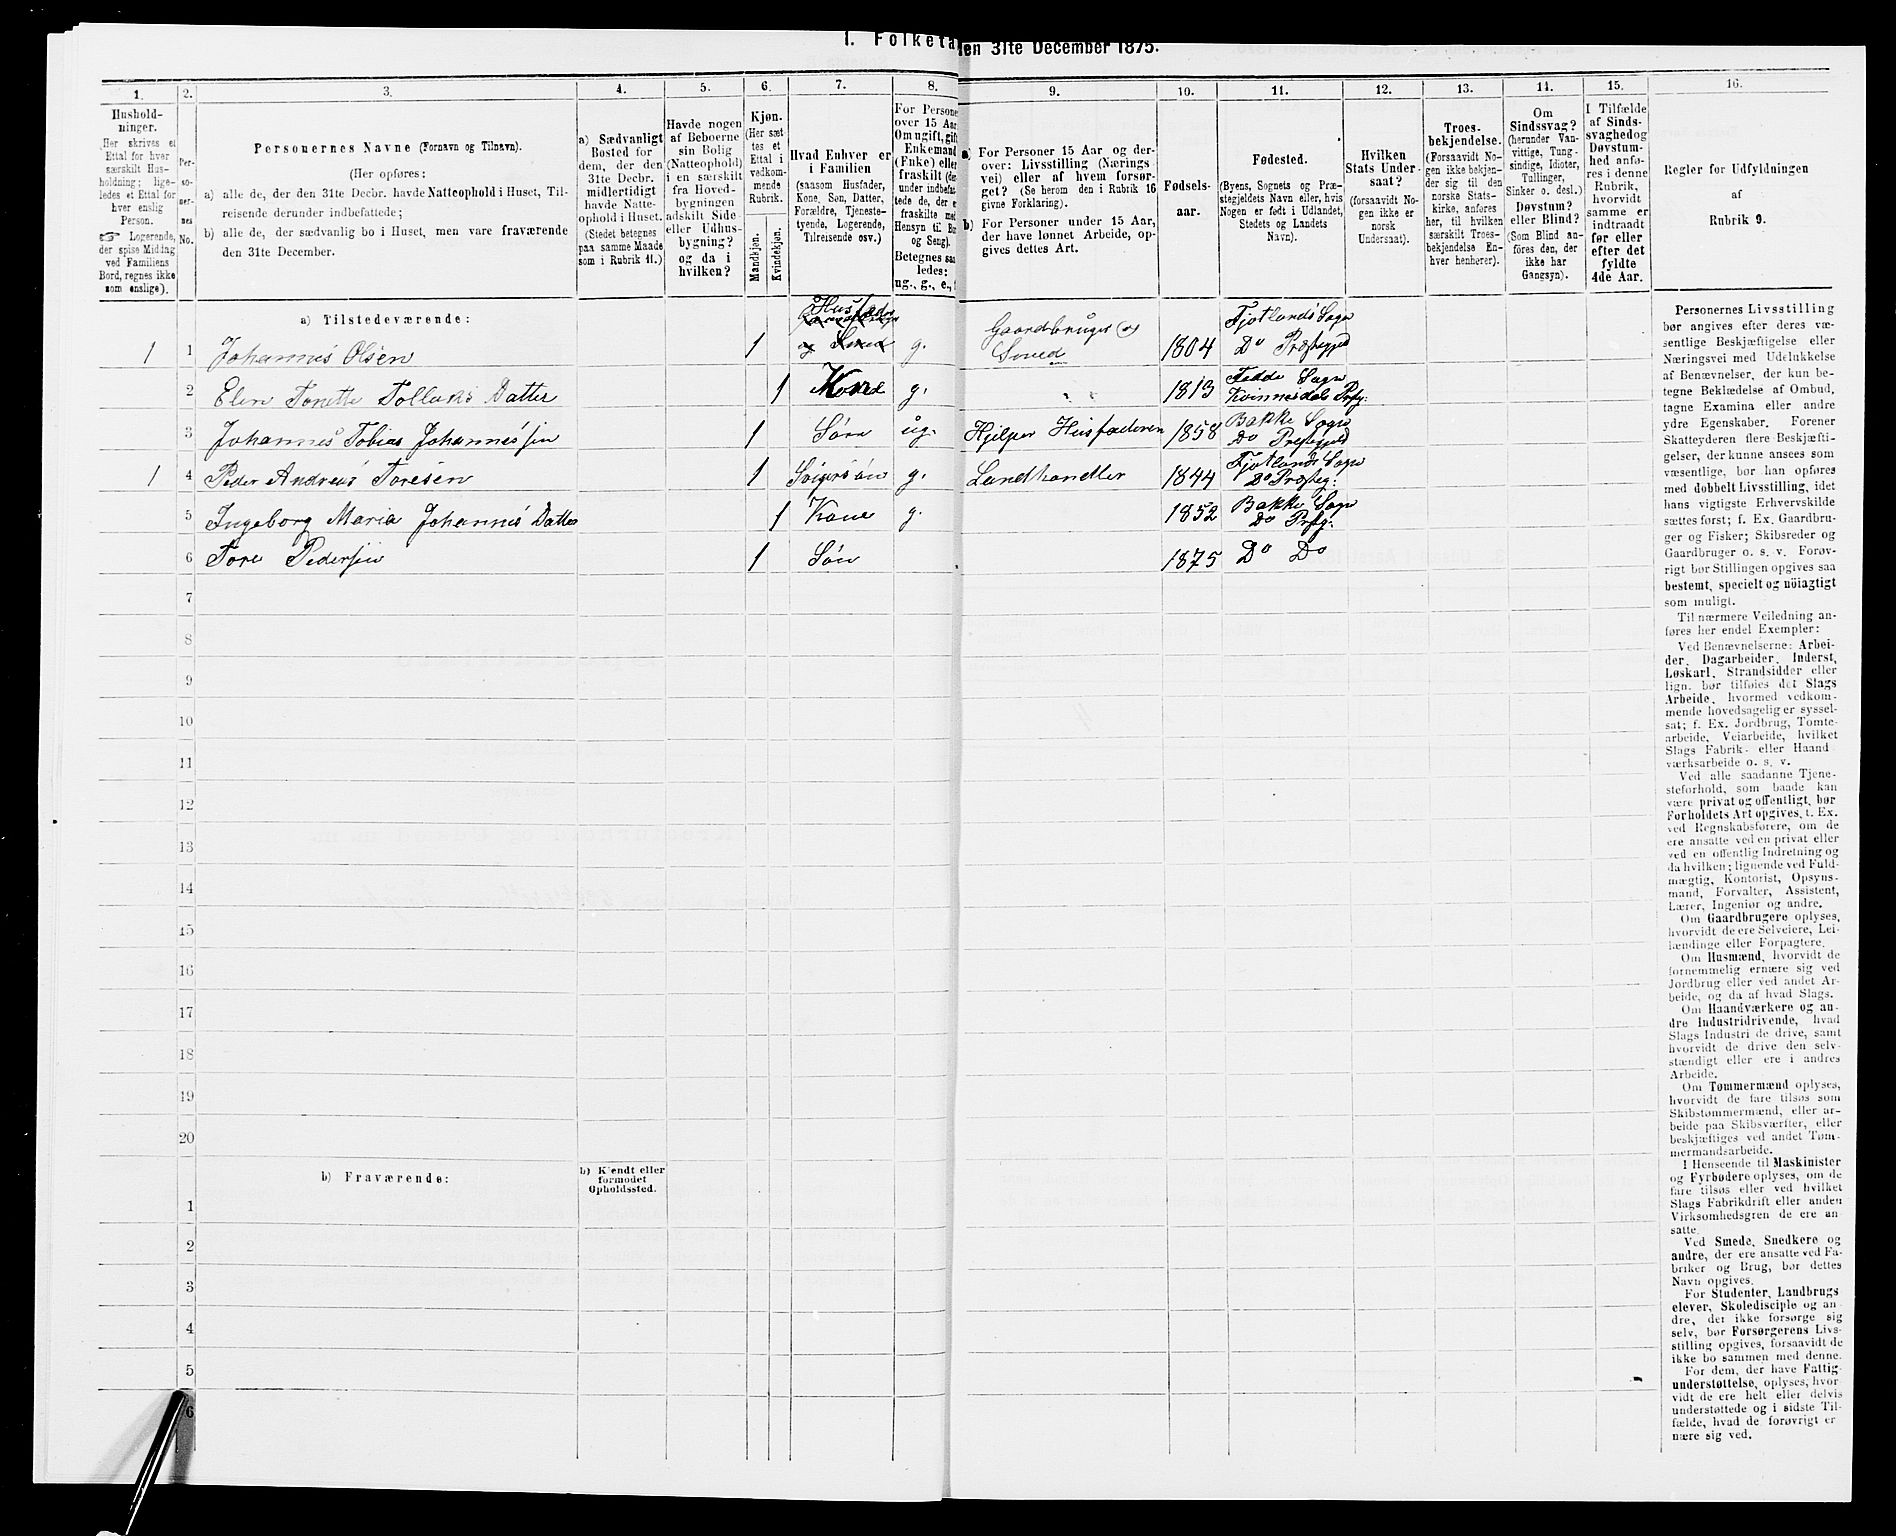 1. Folketæ
den 31te December 1875.
1. 2. 3. 4. 5. 6. 7. 8. 9. 10. 11. 12. 13. 14. 15. 16.
Hushold-
ninger.
(Her skrives et
Ettal for hver
særskilt Hus-
holdning; lige-
ledes et Ettal for
hver enslig
Person.
☞ Logerende,
der spise Middag
ved Familiens
Bord, regnes ikke
som enslige).
Per-
so-
ner-
nes
No.
Personernes Navne (Fornavn og Tilnavn).
(Her opføres:
a) alle de, der den 31te Decbr. havde Natteophold i Huset, Til-
reisende derunder indbefattede;
b) alle de, der sædvanlig bo i Huset, men vare fraværende
den 31te December.
a) Sædvanligt
Bosted for
dem, der den
31te Decbr.
midlertidigt
havde Natte-
ophold i Huset.
(Stedet betegnes
paa samme Maade
som i Rubrik 11.)
Havde nogen
af Beboerne
sin Bolig
(Natteophold)
i en særskilt
fra Hoved-
bygningen
adskilt Side-
eller Udhus-
bygning?
og da i
hvilken?
Kjøn.
(Her sæt
tes et
Ettal i
vedkom-
mende
Rubrik.
Mandkjøn.
Kvindekjøn.
Hvad Enhver er
i Familien
(saasom Husfader,
Kone, Søn, Datter,
Forældre, Tjeneste-
tyende, Logerende,
Tilreisende osv.)
For Persone
over 15 Aar
Om ugift, gift
Enkemand
(Enke) eller
fraskilt (der
under indbefat
tede de, der e
fraskilte med
Hensyn til Bo
og Seng).
Betegnes saa
ledes:
ug., g., e.,
a) For Personer 15 Aar og der-
over: Livsstilling (Nærings
vei) eller af hvem forsør-
get? (Se herom den i Rubrik 16
givne Forklaring).
b) For Personer under 15 Aar,
der have lønnet Arbeide, op-
gives dettes Art.
Fødsels-
aar.
Fødested.
(Byens, Sognets og Præ-
stegjeldets Navn eller, hvis
Nogen er født i Udlandet,
Stedets og Landets
Navn).
Hvilken
Stats Under-
saat?
(forsaavidt No-
gen ikke er
norsk
Undersaat).
Troes-
bekjendelse.
(Forsaavidt No-
gen ikke bekjen-
der sig til den
norske Stats-
kirke, anføres
her, til hvilken
særskilt Troes-
bekjendelse En-
hver henhører).
Om
Sindssvag?
(herunder Van-
vittige, Tung-
sindige, Idioter,
Tullinger,
Sinker o. desl.)
Døvstum?
eller Blind?
(Som Blind an-
føres den, der
ikke har
Gangsyn).
I Tilfælde
af Sinds-
svaghed og
Døvstum-
hed anfø-
res i denne
Rubrik,
hvorvidt
samme er
indtraadt
før eller
efter det
fyldte
4de Aar.
Regler for Udfyldningen
af
Rubrik 9.
a) Tilstedeværende:
Husfader
1 1 Johannes Olsen 1 og Smed g. Gaardbruger og Smed 1804 Fjotlands Sogn Do Præstegjeld
2 Elen Tonette Tollaks Datter 1 Kone g. 1813 Fedde Sogn Kvinnesdals Prstg:
3 Johannes Tobias Johannessen 1 Søn ug. Hjelper Husfaderen 1858 Bakke Sogn Do Præstegjeld
1 4 Peder Andreas Toresen 1 Svigersøn g. Landhandler 1844 Fjotlands Sogn Do Præsteg:
5 Ingeborg Maria Johannes Datter 1 Kone g. 1852 Bakke Sogn Do Prstg:
6 Tore Pedersen 1 Søn 1875 Do Do
7
8
9
10
11
12
13
14
15
16
17
18
19
20
b) Fraværende:
b) Kjendt eller
formodet
Opholdssted.
1
2
3
4
5
6
Personernes Livsstilling
bør angives efter deres væ-
sentlige Beskjæftigelse eller
Næringsvei med Udelukkelse
af Benævnelser, der kun be-
tegne Beklædelse af Ombud,
tagne Examina eller andre
ydre Egenskaber. Forener
Skatteyderen flere Beskjæfti-
gelser, der kunne ansees som
væsentlige, bør han opføres
med dobbelt Livsstilling, idet
hans vigtigste Erhvervskilde
sættes først; f. Ex. Gaardbru-
ger og Fisker; Skibsreder og
Gaardbruger o. s. v. Forøv-
rigt bør Stillingen opgives saa
bestemt, specielt og nöiagtigt
som muligt.
Til nærmere Veiledning an-
føres her endel Exempler:
Ved Benævnelserne: Arbei-
der, Dagarbeider, Inderst,
Løskarl, Strandsidder eller
lign. bør tilføies det Slags
Arbeide, hvormed vedkom-
mende hovedsagelig er syssel-
sat; f. Ex. Jordbrug, Tomte-
arbeide, Veiarbeide, hvilket
Slags Fabrik- eller Haand
værksarbeide o. s. v.
Ved alle saadanne Tjene-
steforhold, som baade kan
være privat og offentligt, bør
Forholdets Art opgives, f. Ex.
ved Regnskabsførere, om de
ere ansatte ved en privat eller
ved en offentlig Indretning og
da hvilken; lignende ved Fuld-
mægtig, Kontorist, Opsyns-
mand, Forvalter, Assistent,
Lærer, Ingeniør og andre.
Om Gaardbrugere oplyses,
hvorvidt de ere Selveiere, Lei-
lændinge eller Forpagtere.
Om Husmænd, hvorvidt de
fornemmelig ernære sig ved
Jordbrug eller ved andet Ar-
beide, og da af hvad Slags.
Om Haandværkere og an-
dre Industridrivende, hvad
Slags Industri de drive, samt
hvorvidt de drive den selv-
stændigt eller ere i andres
Arbeide.
Om Tømmermænd oplyses,
hvorvidt de fare tilsøs som
Skibstømmermænd, eller ar-
beide paa Skibsværfter, eller
beskjæftiges ved andet Tøm-
mermandsarbeide.
I Henseende til Maskinister
og Fyrbødere oplyses, om de
fare tilsøs eller ved hvilket
Slags Fabrikdrift eller anden
Virksomhedsgren de ere an-
satte.
Ved Smede, Snedkere og
andre, der ere ansatte ved Fa-
briker og Brug, bør dettes
Navn opgives.
For Studenter, Landbrugs
elever, Skoledisciple og an-
dre, der ikke forsørge sig
selv, bør Forsørgerens Livs-
stilling opgives, forsaavidt de
ikke bo sammen med denne.
For dem, der have Fattig-
understøttelse, oplyses, hvor-
vidt de ere helt eller delvis
understøttede og i sidste Til-
fælde, hvad de forøvrigt er
nære sig ved.